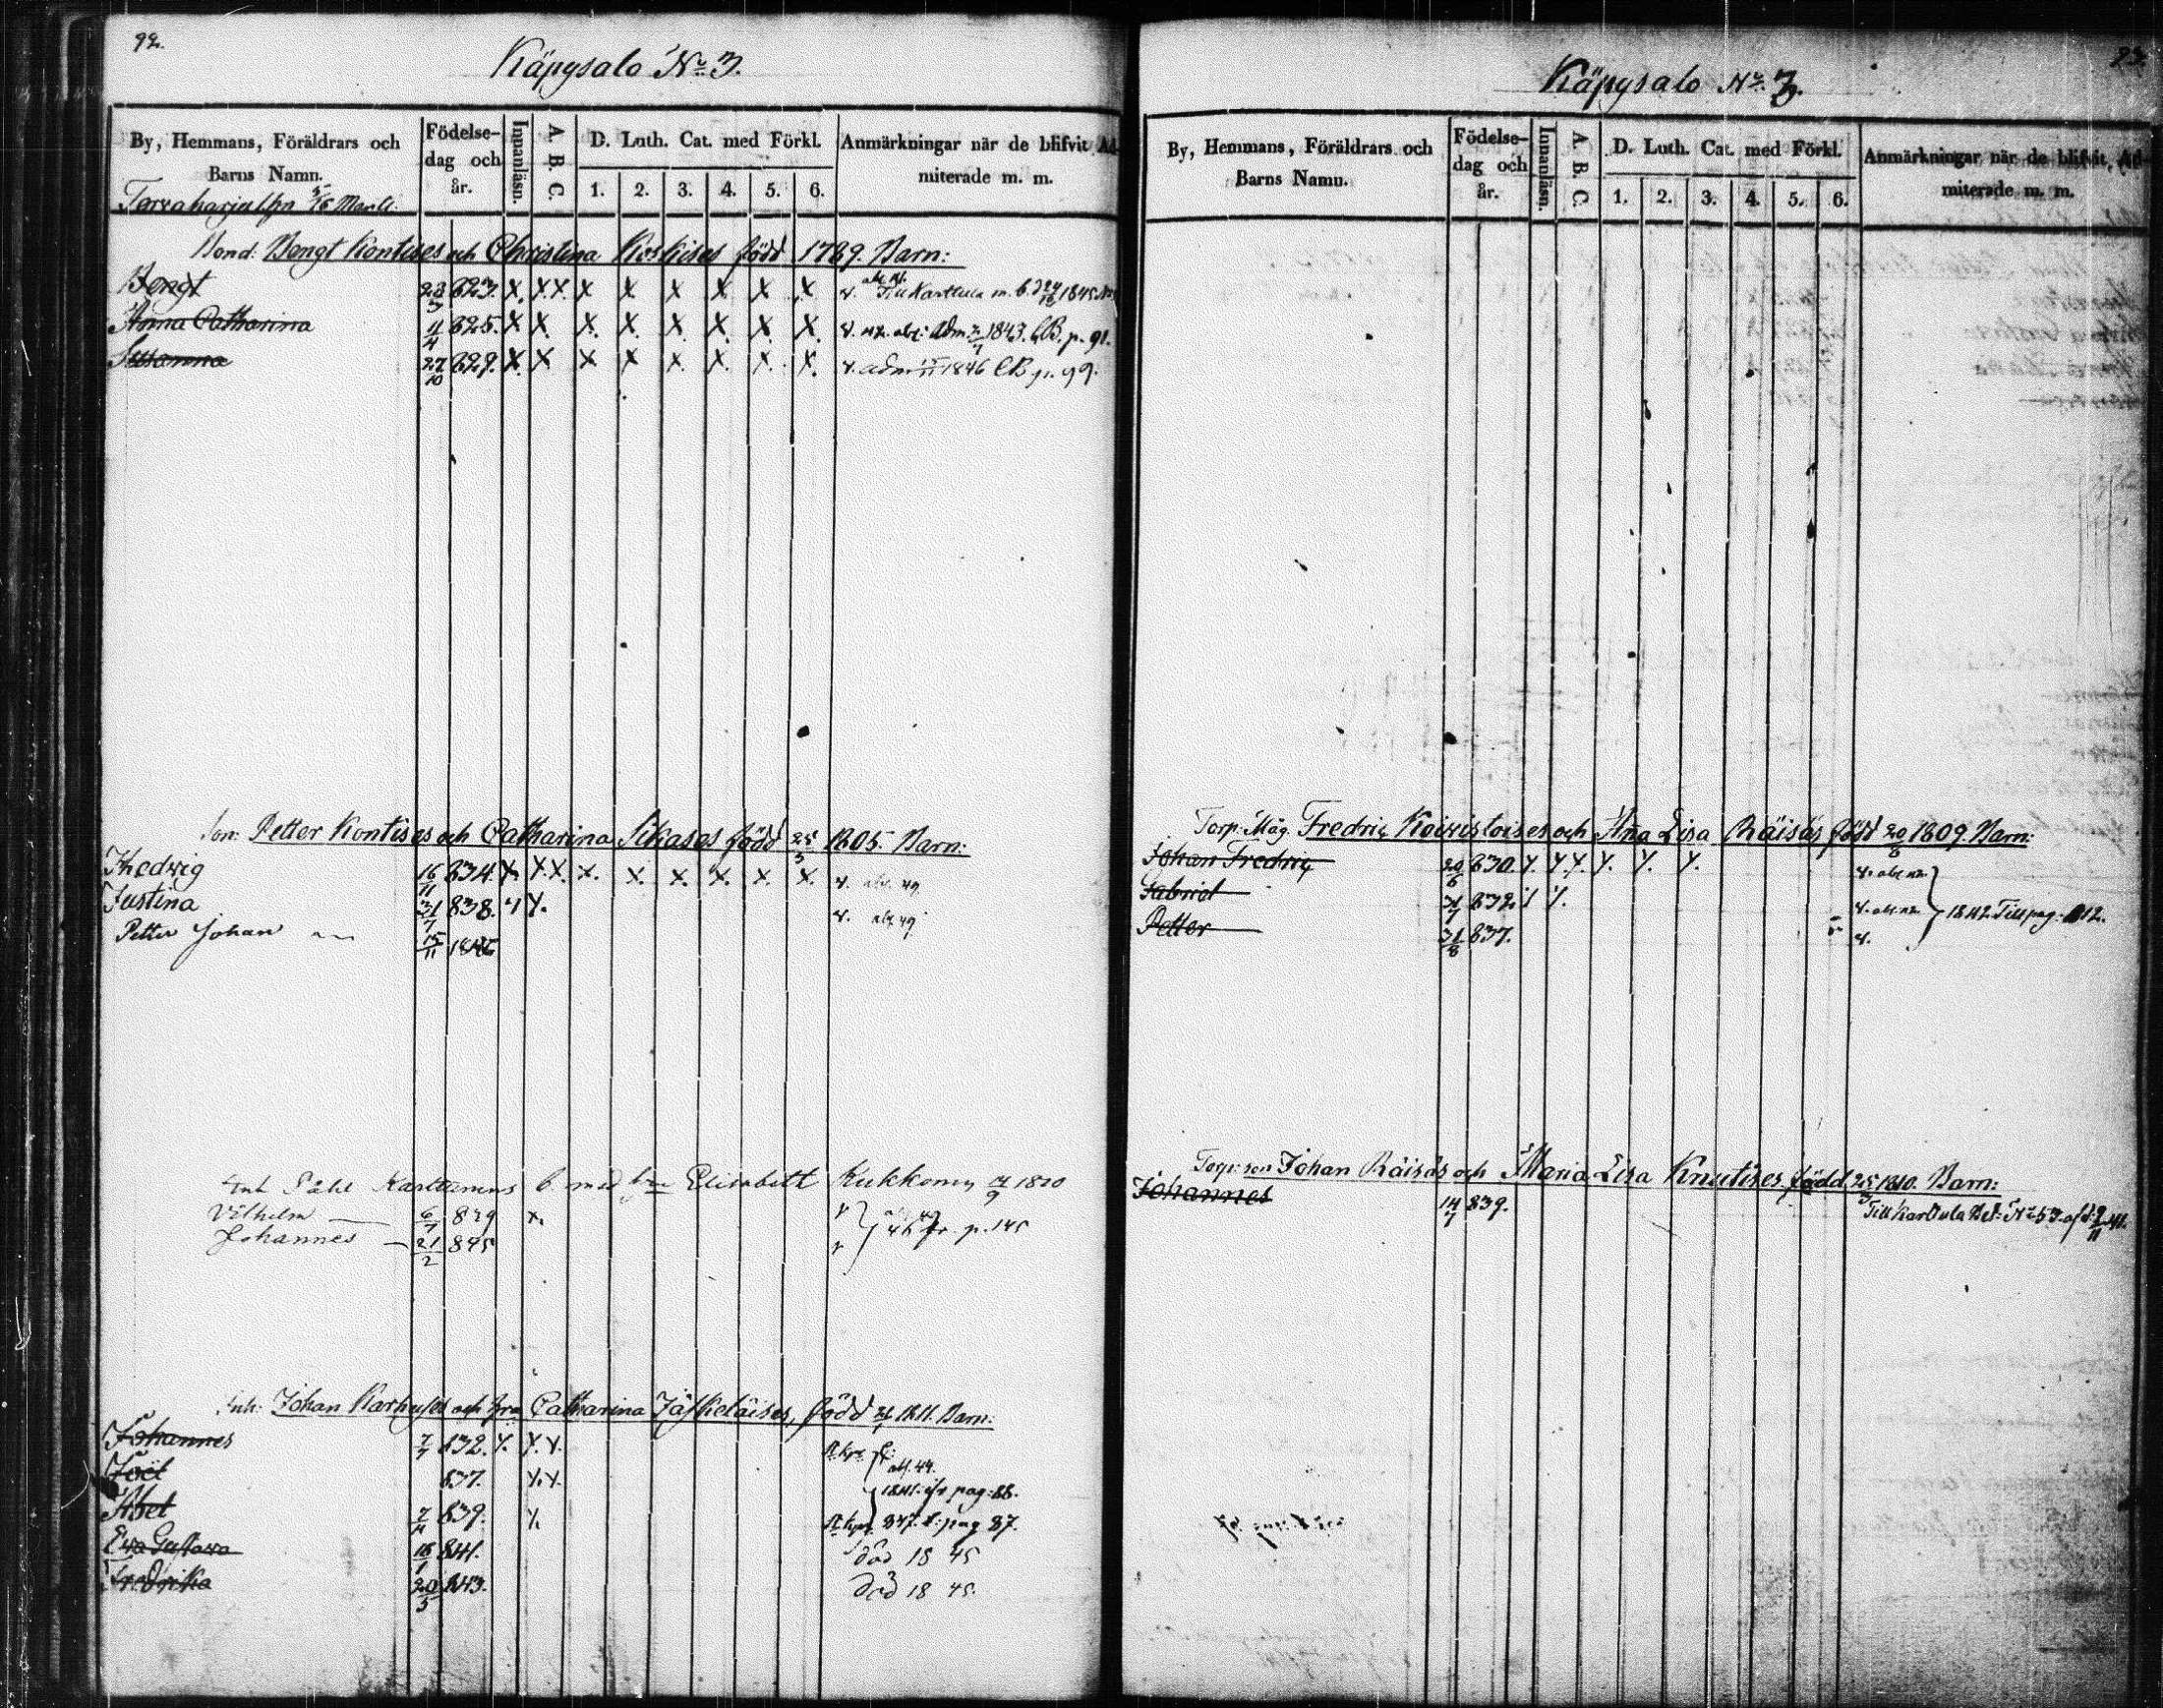 92.
Käpysalo No 3.
By, Hemmans, Föräldrars och Barns Namn.
Födelsedag och år.
Innanläsn.
A. B. C.
D. Luth. Cat. med Förkl.
1. 2. 3. 4. 5. 6.
Anmärkningar när de blifvit Admiterade m. m.
Bond: Bengt Kontises och Christina Koskises född 1789. Barn:
Bengt 23/3 823. X. X.X. X X X X X X Till Karttula 1845
Anna Catharina 4/4 825. X X X. X. X. X. X. X. adm: 1843. CB. p. 91.
Susanna 27/10 829. X. X X X X. X. X. X. adm 1846 CB p. 99.
Son: Petter Kontises och Catharina Sikases född 25/3 1805. Barn:
Hedwig 16/11 834. X. X.X. X. X. X. X. X. X.
Justina 31/7 838.
Petter Johan 15/11 1846
Inh Påhl Karttunens Elisabeth Kukkonen 1810
Vilhelm 6/7 839 x.
Johannes 21/2 845 p. 145
Inh: Johan Karhuses och Catharina Jäskeläises, född 1811. Barn:
Johannes 7/7 832.
Joel 837.
1841. pag: 88.
Abel 839. 847. pag 87.
Ewa Gustava 841. död 1845
Fredrika 20/5 843. död 1845.
93.
Käpysalo No. 3.
By, Hemmans, Föräldrars och Barns Namn.
Födelsedag och år.
Innanläsn.
A. B. C.
D. Luth. Cat. med Förkl.
1. 2. 3. 4. 5. 6.
Anmärkningar när de blifvit Admiterade m. m.
Torp: Måg. Fredric Koiwistoises och Anna Lisa Räisäs född 20/8 1809. Barn:
Johan Fredric 20/6 830.
Gabriel 31/7 832. 1842. Till pag: 112.
Petter 31/8 837.
Torp: son Johan Räisäs och Maria Lisa Knutises född 25/3 1810. Barn:
Johannes 14/7 839. Till Karttula No 53.